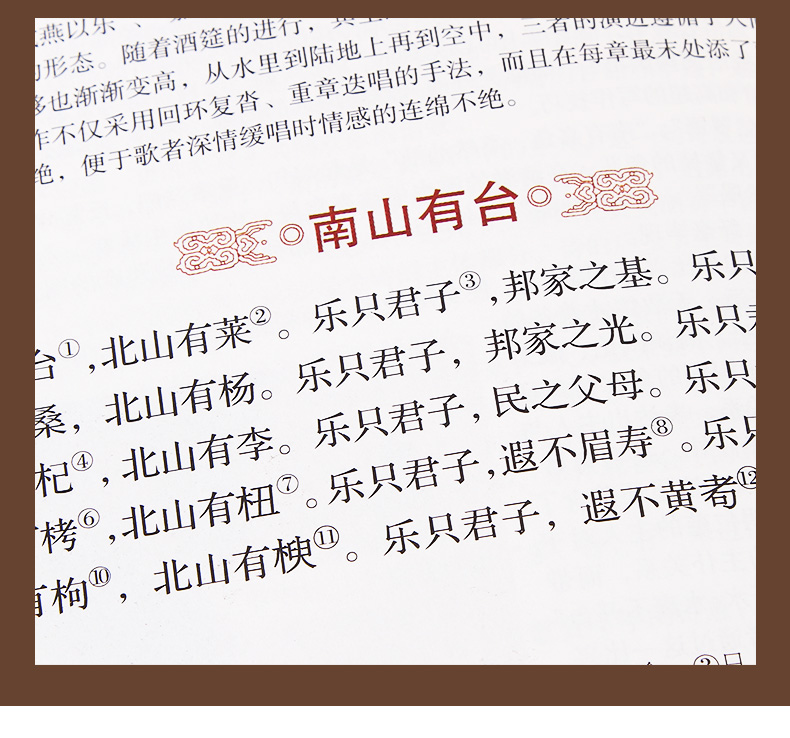 燕以乐
形态。随着酒筵的进行，
也渐渐变高，从水里到陆地上再到空中，三者的演进遵循了
作不仅采用回环复沓、重章迭唱的手法，而且在每章最末处添了
绝，便于歌者深情缓唱时情感的连绵不绝。
南山有台
台①,北山有莱②。乐只君子③,邦家之基。乐只
桑，北山有杨。乐只君子，邦家之光。乐只
杞④,北山有李。乐只君子,民之父母。乐只
有栲⑥,北山有杻⑦。乐只君子,遐不眉寿⑧。乐只
有枸⑩，北山有楰⑪。乐只君子，遐不黄耇⑫